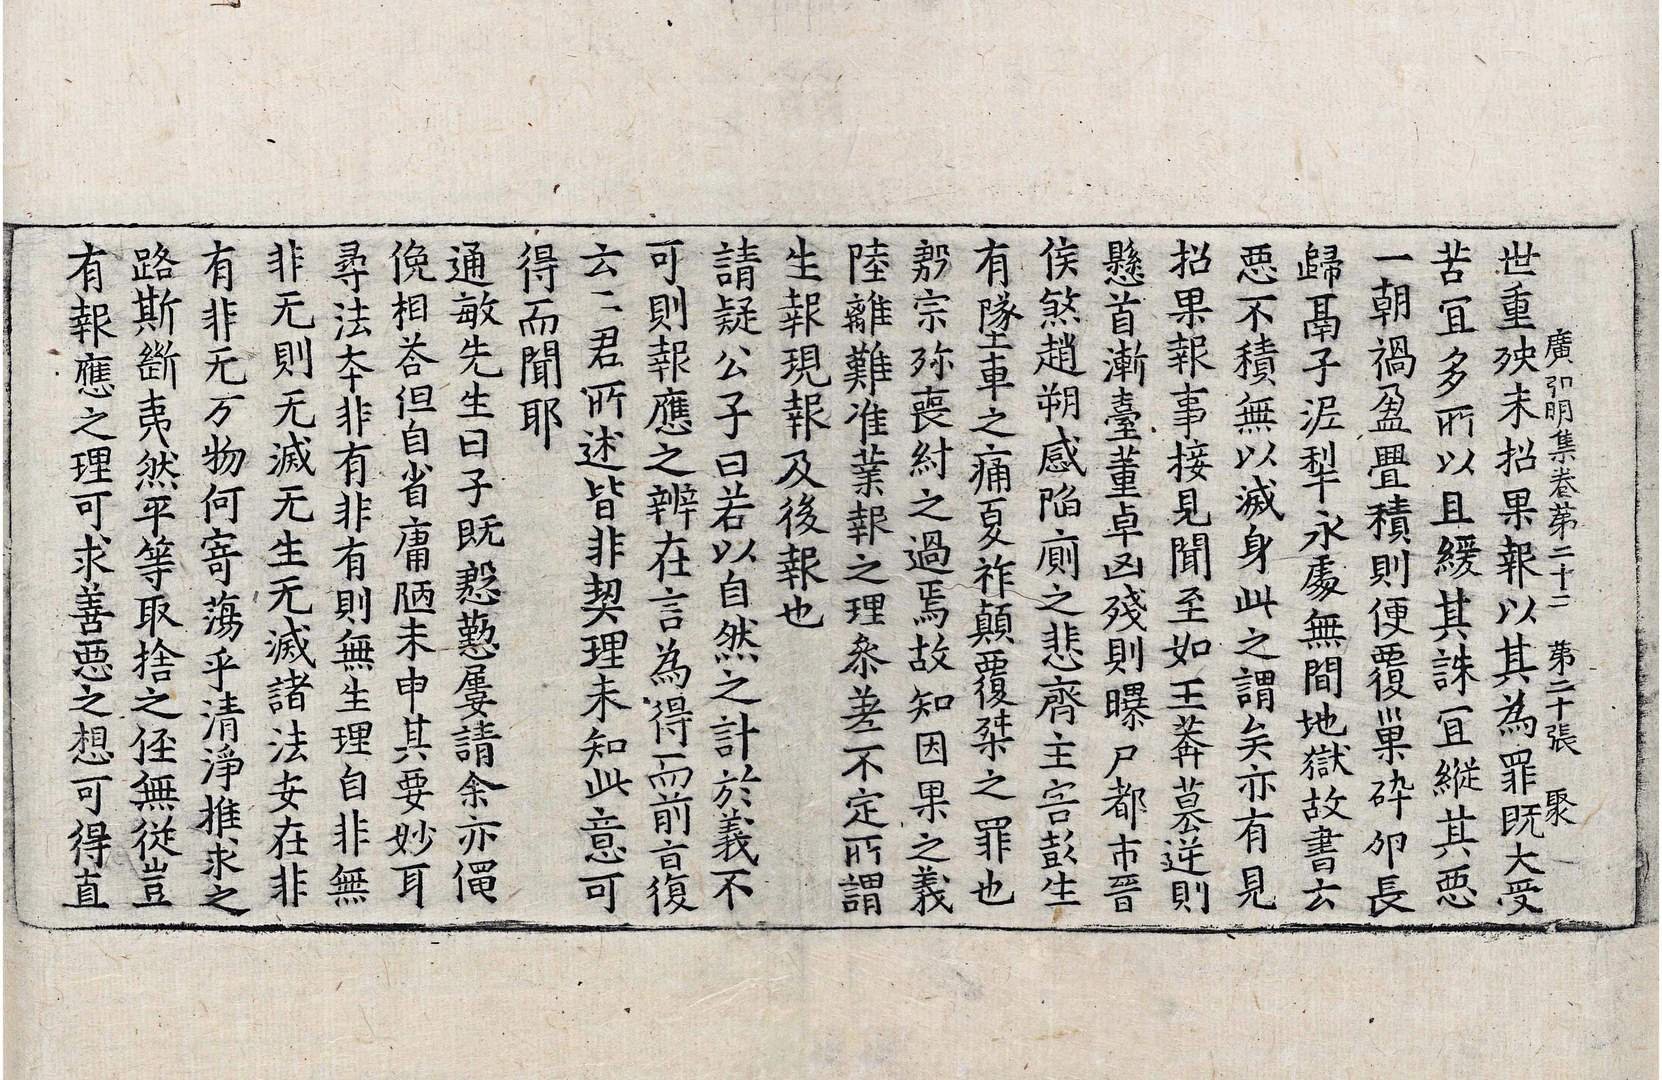 廣弘明集卷苐二十二 苐二十張 聚
世重殃未招果報以其為罪旣大受
苦冝多所以且緩其誅冝縱其惡
一朝禍盈疊積則便覆巢碎卵長
歸鬲子泥犁永處無間地獄故書云
惡不積無以滅身此之謂矣亦有見
招果報事接見聞至如王莽慕逆則
懸首漸臺董卓凶殘則曝尸都市晉
侯煞趙朔感陷廁之悲齊主害彭生
有墜車之痛夏祚顛覆桀之罪也
殷宗殄喪紂之過焉故知因果之義
陸離難准業報之理叅差不定所謂
生報現報及後報也
請疑公子曰若以自然之計於義不
可則報應之辨在言為得而前言復
云二君所述皆非契理未知此意可
得而聞耶
通敏先生曰子旣慇懃屢請余亦僶
俛相荅但自省庸陋未申其要妙耳
尋法夲非有非有則無生理自非無
非无則无滅无生无滅諸法安在非
有非无万物何寄蕩乎清淨推求之
路斯斷夷然平等取捨之侄無從豈
有報應之理可求善惡之想可得直